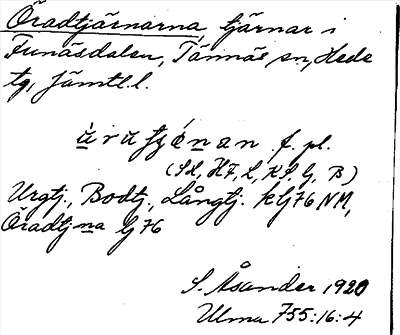 Öradtjärnarna, tjärnar i
Funäsdalen, Tännäs sn, Hede
tg, Jämtl. l.
f. pl.
Urgtj., Bodtj., Långtj. KG76 NM,
Öradtj-na G76
S. Åsander 1920
Ulma 755:16:4